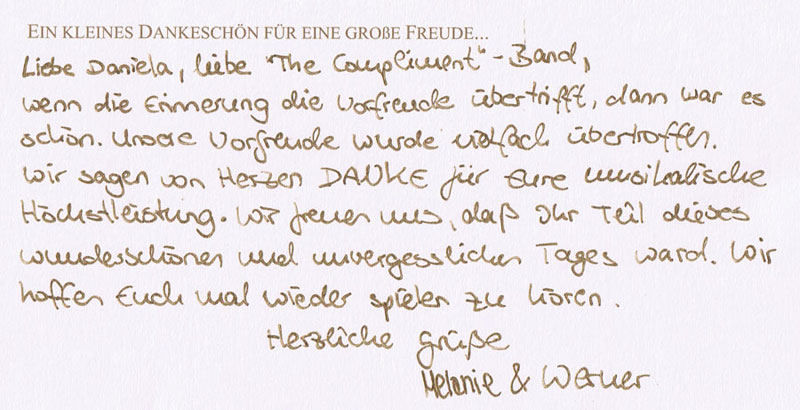 EIN KLEINES DANKESCHÖN FÜR EINE GROßE FREUDE...
Liebe Daniela, liebe "The Compliment"-Band,
wenn die Erinnerung die Vorfreude übertrifft, dann war es
schön. Unsere Vorfreude wurde vielfach übertroffen.
Wir sagen von Herzen DANKE für Eure musikalische
Höchstleistung. Wir freuen uns, daß Ihr Teil dieses
wunderschönen und unvergesslichen Tages ward. Wir
hoffen Euch mal wieder spielen zu hören.
Herzliche Grüße
Melanie & Werner